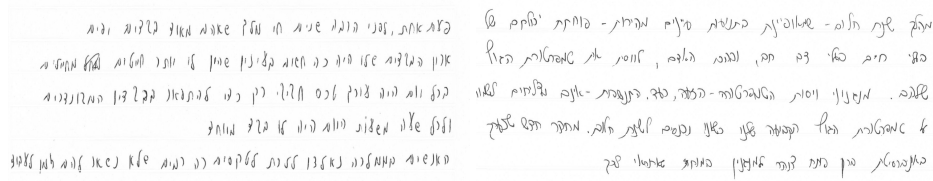 מהלך שנת חלום - שמאופיינת בתנועות עיניים מהירות - פוחתת יכולתם של
בעלי חיים בעלי דם חם, ובהם האדם, לווסת את טמפרטורת הגוף
שלהם. מנגנוני ויסות הטמפרטורה - הזעה, רעד, התנשפות - אינם מצליחים לשמור
על טמפרטורת הגוף הקבועה שלנו כשאנו נכנסים לשנת חלום. מחקר חדש שנערך
באוניברסיטת ברן פתח צוהר למנגנון במוח שאחראי לכך
פעם אחת, לפני הרבה שנים חי מלך שאהב מאוד בגדים יפים
ארון הבגדים שלו היה כה חשוב בעיניו שהיו לו יותר חייטים מחיילים
בכל יום היה עורך טקס חגיגי רק כדי להתפאר בבגדיו המהודרים
ולכל שעה משעות היום היה לו בגד מיוחד
האנשים בממלכה נאלצו ללכת לטקסים כה רבים שלא נשאר להם זמן לעבוד